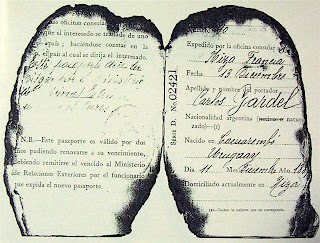 oficinas consular
que el interesado se trasade de uno
país; haciéndose constar en la
el país al cual se dirija el interesado.
Este pasaporte
N.B.—Este pasaporte es válido por dos
años pudiendo renovarse a su vencimiento,
debiendo remitirse el vencido al Ministerio
de Relaciones Exteriores por el funcionario
que expida el nuevo pasaporte.
SERIE D. No. 02421
Expedido por la oficina consular
Niza, Francia
Fecha 13 Diciembre
Apellido y nombre del portador
Carlos Gardel
Nacionalidad argentina
zado)—(1)
Nacido en Tacuarembó
Uruguay
Dia 11 Mes Diciembre Año 18
Domiciliado actualmente en Niza
(1)—Tachar la palabra que no corresponde.